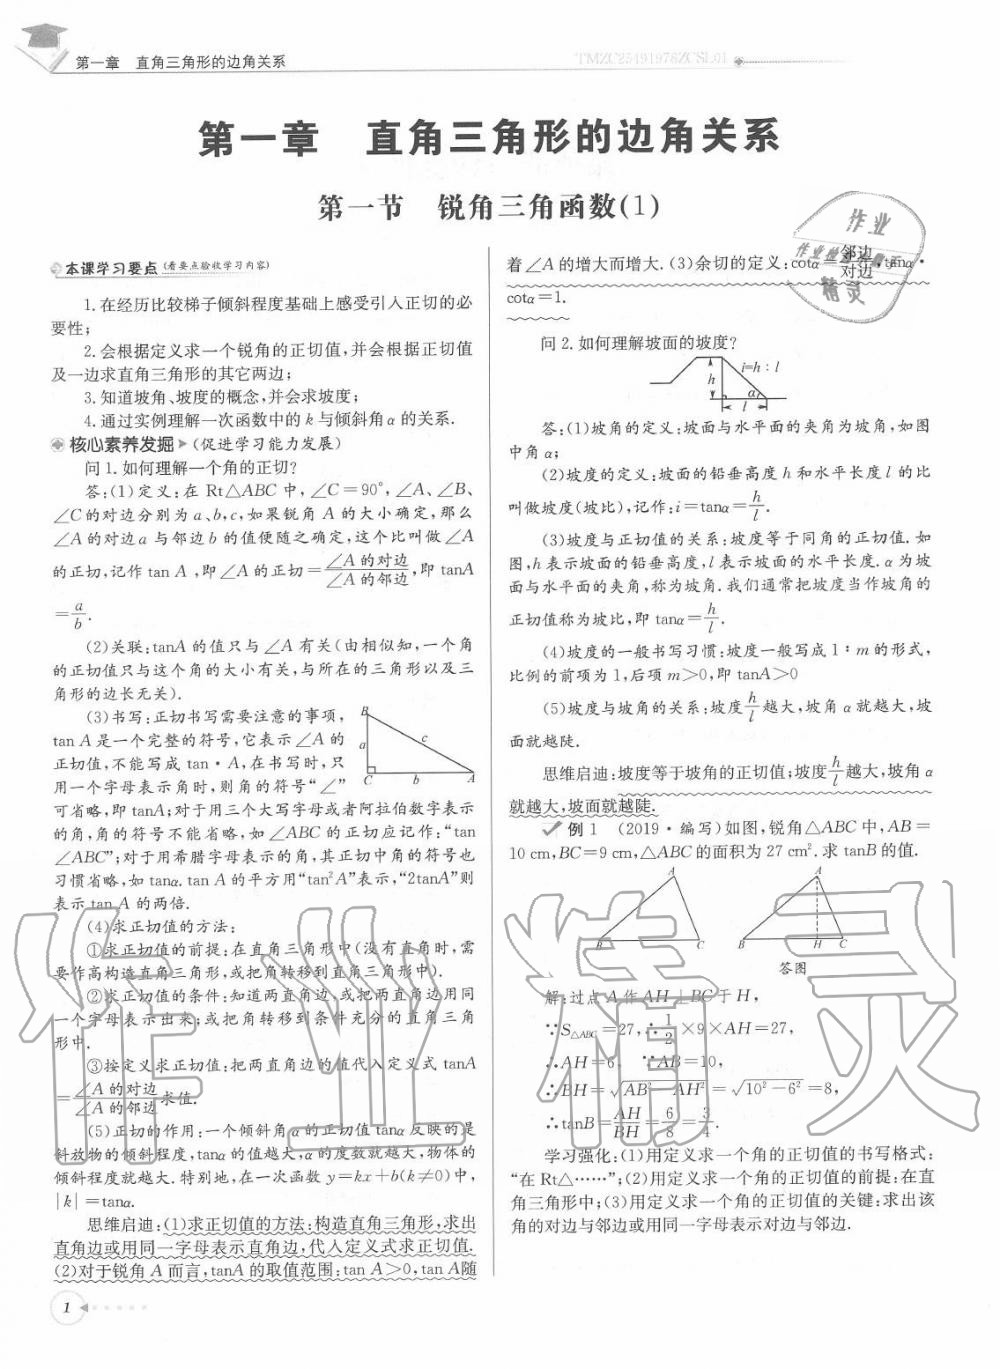 第一章 直角三角形的边角关系
TMZC25491978ZCSL01
第一章 直角三角形的边角关系
第一节 锐角三角函数(1)
本课学习要点(看要点验收学习内容)
1.在经历比较梯子倾斜程度基础上感受引入正切的必
要性;
2.会根据定义求一个锐角的正切值,并会根据正切值
及一边求直角三角形的其它两边;
3.知道坡角、坡度的概念,并会求坡度;
4.通过实例理解一次函数中的k与倾斜角α的关系.
核心素养发掘(促进学习能力发展)
问1.如何理解一个角的正切?
答:(1)定义:在Rt△ABC中,∠C=90°,∠A、∠B、
∠C的对边分别为a、b,c,如果锐角A的大小确定,那么
∠A的对边a与邻边b的值便随之确定,这个比叫做∠A
的正切,记作tan A,即∠A的正切=∠A的对边/∠A的邻边,即tanA
=a/b.
(2)关联:tanA的值只与∠A有关(由相似知,一个角
的正切值只与这个角的大小有关,与所在的三角形以及三
角形的边长无关).
(3)书写:正切书写需要注意的事项,
tan A是一个完整的符号,它表示∠A的
正切值,不能写成tan·A,在书写时,只
用一个字母表示角时,则角的符号“∠”
B
a
c
C
b
A
可省略,即tanA;对于用三个大写字母或者阿拉伯数字表示
的角,角的符号不能省略,如∠ABC的正切应记作:“tan
∠ABC”;对于用希腊字母表示的角,其正切中角的符号也
习惯省略,如tanα.tan A的平方用“tan²A”表示,“2tanA”则
表示tan A的两倍.
(4)求正切值的方法:
①求正切值的前提:在直角三角形中(没有直角时,需
要作高构造直角三角形,或把角转移到直角三角形中).
②求正切值的条件:知道两直角边,或把两直角边用同
一个字母表示出来;或把角转移到条件充分的直角三角
形中.
③按定义求正切值:把两直角边的值代入定义式tanA
=∠A的对边/∠A的邻边求值.
(5)正切的作用:一个倾斜角α的正切值tanα反映的是
斜放物的倾斜程度,tanα的值越大,α的度数就越大,物体的
倾斜程度就越大.特别地,在一次函数y=kx+b(k≠0)中,
|k|=tanα.
思维启迪:(1)求正切值的方法:构造直角三角形,求出
直角边或用同一字母表示直角边,代入定义式求正切值.
(2)对于锐角A而言,tanA的取值范围:tan A>0,tan A随
着∠A的增大而增大.(3)余切的定义:cotα=邻边/对边,tanα·
cotα=1.
问2.如何理解坡面的坡度?
i=h:l
h
α
l
答:(1)坡角的定义:坡面与水平面的夹角为坡角,如图
中角α;
(2)坡度的定义:坡面的铅垂高度h和水平长度l的比
叫做坡度(坡比),记作:i=tanα=h/l.
(3)坡度与正切值的关系:坡度等于同角的正切值.如
图,h表示坡面的铅垂高度,l表示坡面的水平长度.α为坡
面与水平面的夹角,称为坡角.我们通常把坡度当作坡角的
正切值称为坡比,即tanα=h/l.
(4)坡度的一般书写习惯:坡度一般写成1∶m的形式,
比例的前项为1,后项m>0,即tanA>0
(5)坡度与坡角的关系:坡度h/l越大,坡角α就越大,坡
面就越陡.
思维启迪:坡度等于坡角的正切值;坡度h/l越大,坡角α
就越大,坡面就越陡.
例1 (2019·编写)如图,锐角△ABC中,AB=
10 cm,BC=9 cm,△ABC的面积为27 cm².求tanB的值.
A
B
C
A
B
H
C
答图
解:过点A作AH⊥BC于H,
∵S△ABC=27,∴1/2×9×AH=27,
∴AH=6, ∵AB=10,
∴BH=√AB²-AH²=√10²-6²=8,
∴tanB=AH/BH=6/8=3/4.
学习强化:(1)用定义求一个角的正切值的书写格式:
“在Rt△……”;(2)用定义求一个角的正切值的前提:在直
角三角形中;(3)用定义求一个角的正切值的关键:求出该
角的对边与邻边或用同一字母表示对边与邻边.
作业
精灵
作业精灵
1